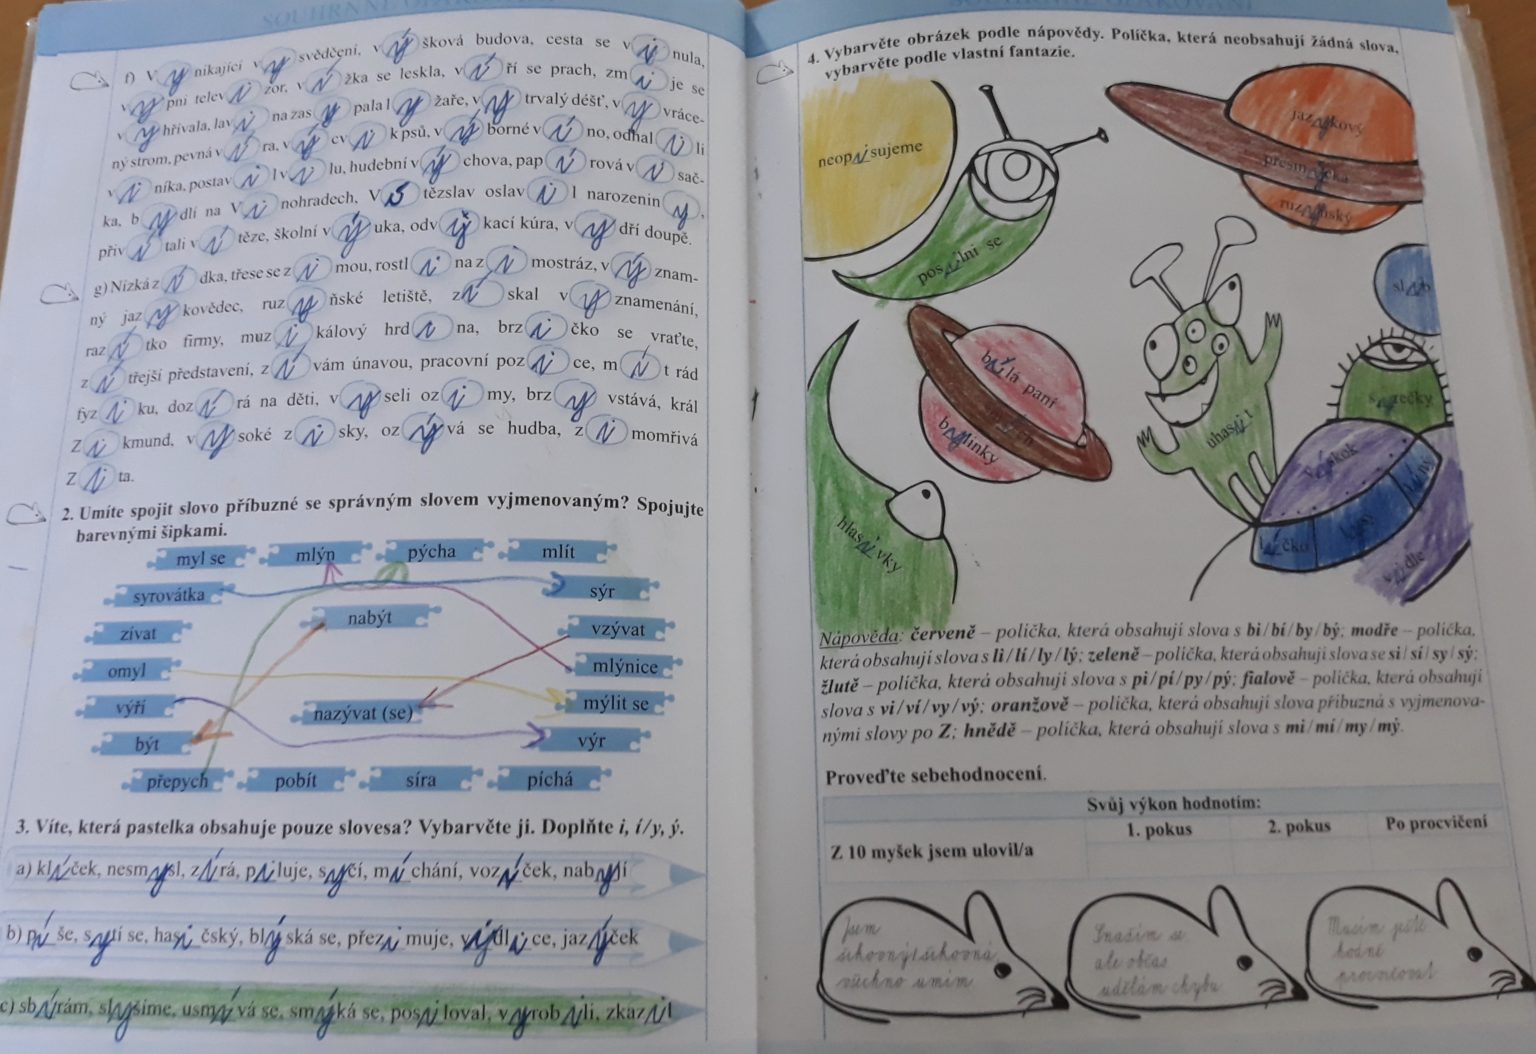 SOUHRNNÉ OPAKOVÁNÍ
f) Vynikající vysvědčení, výšková budova, cesta se vinula,
vypni televizor, vížka se leskla, víří se prach, zmije se
vyhřívala, lavina zasypala lyžaře, vytrvalý déšť, vyvráce-
ný strom, pevná víra, výcvik psů, výborné víno, odhalili
viníka, postavil vilu, hudební výchova, papírová visač-
ka, bydlí na Vinohradech, Vítězslav oslavil narozeniny,
přivítali vítěze, školní výuka, odvykací kúra, vydří doupě.
g) Nízká zídka, třese se zimou, rostlina zimostráz, význam-
ný jazykovědec, ruzyňské letiště, získal vyznamenání,
razítko firmy, muzikálový hrdina, brzičko se vraťte,
zítřejší představení, zívám únavou, pracovní pozice, mít rád
fyziku, dozírá na děti, veselí ozimy, brzy vstává, král
Zikmund, vysoké zisky, ozývá se hudba, zimomřivá
Zita.
2. Umíte spojit slovo příbuzné se správným slovem vyjmenovaným? Spojujte
barevnými šipkami.
myl se mlýn pýcha mlít
syrovátka sýr
zívat nabýt vzývat
omyl mlýnice
výří nazývat (se) mýlit se
být výr
přepych pobít síra píchá
3. Víte, která pastelka obsahuje pouze slovesa? Vybarvěte ji. Doplňte i, í/y, ý.
a) klíček, nesmysl, zírá, piluje, syčí, míchání, vozíček, nabyjí
b) píše, sytí se, hasičský, blýská se, přezimuje, vidlice, jazýček
c) sbírám, slyšíme, usmívá se, smýká se, posiloval, vyrobili, zkazil
SOUHRNNÉ OPAKOVÁNÍ
4. Vybarvěte obrázek podle nápovědy. Políčka, která neobsahují žádná slova,
vybarvěte podle vlastní fantazie.
neopisujeme
posilni se
jazykový
přesmyčka
ruzyňský
slib
bílá paní
bylinky
uhasil
výskok
hlasivky
Nápověda: červeně – políčka, která obsahují slova s bi/bí/by/bý; modře – políčka,
která obsahují slova s li/lí/ly/lý; zeleně – políčka, která obsahují slova se si/sí/sy/sý;
žlutě – políčka, která obsahují slova s pi/pí/py/pý; fialově – políčka, která obsahují
slova s vi/ví/vy/vý; oranžově – políčka, která obsahují slova příbuzná s vyjmenova-
nými slovy po Z; hnědě – políčka, která obsahují slova s mi/mí/my/mý.
Proveďte sebehodnocení.
Svůj výkon hodnotím:
1. pokus 2. pokus Po procvičení
Z 10 myšek jsem ulovil/a
Jsem
šikovný/šikovná
všechno umím
Snažím se
ale občas
udělám chybu
Musím ještě
hodně
procvičovat